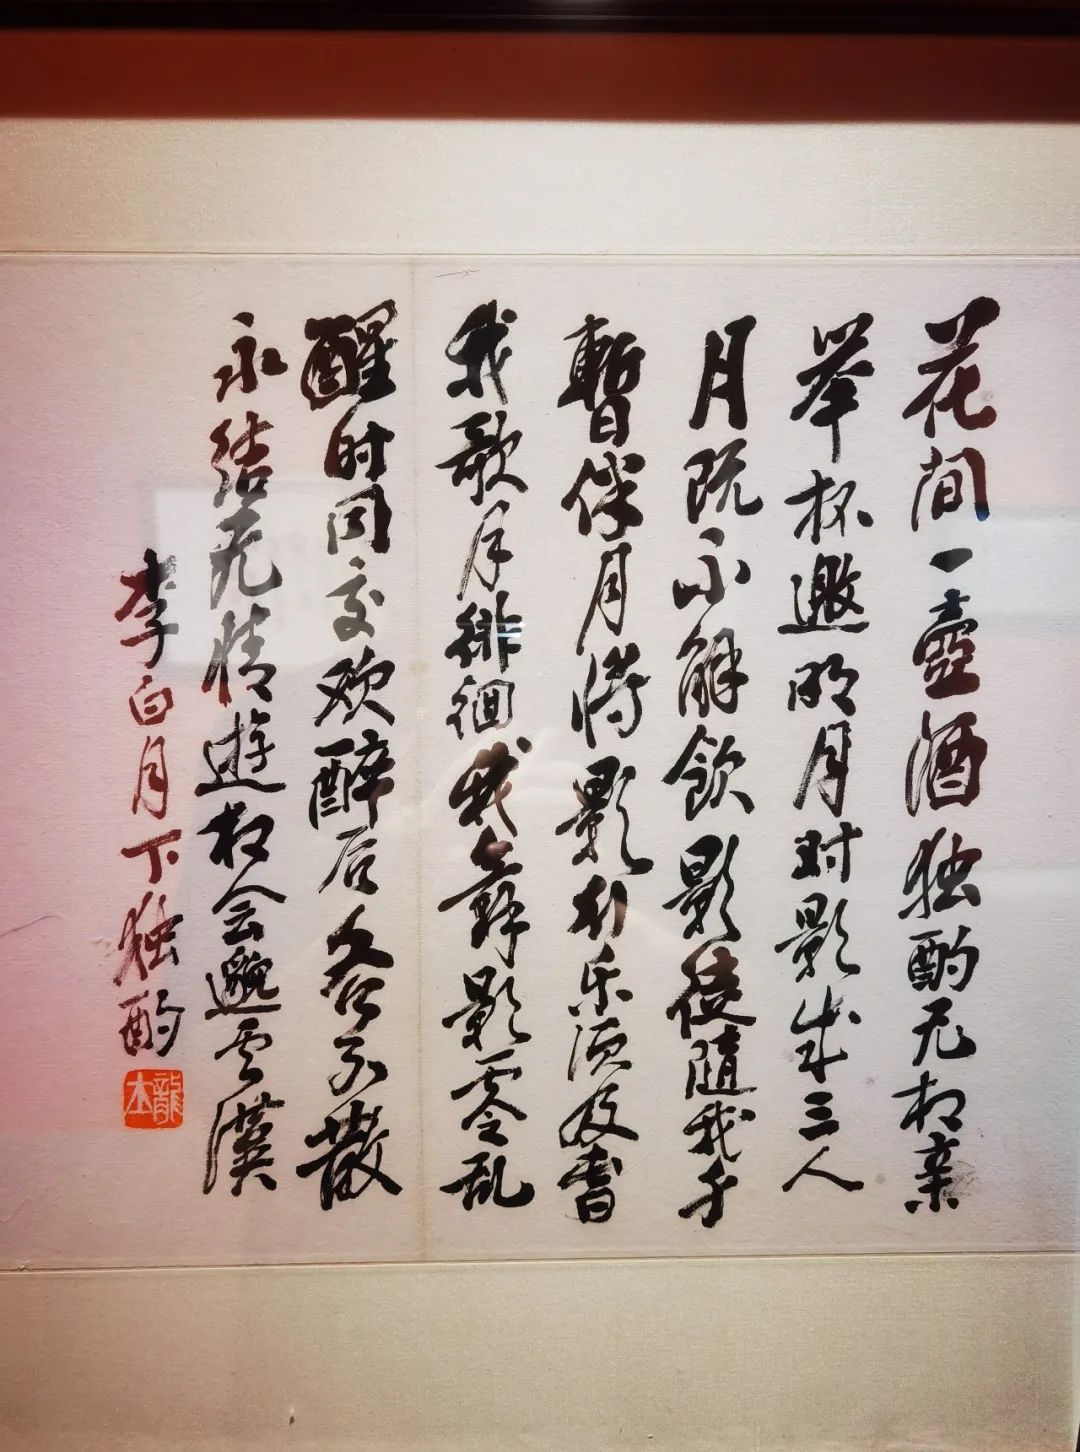 花间一壶酒独酌无相亲
举杯邀明月对影成三人
月既不解飲影徒随我身
暫伴月将影行乐须及春
我歌月徘徊我舞影零乱
醒时同交欢醉后各分散
永结无情遊相会邈云漢
李白月下独酌
龍本